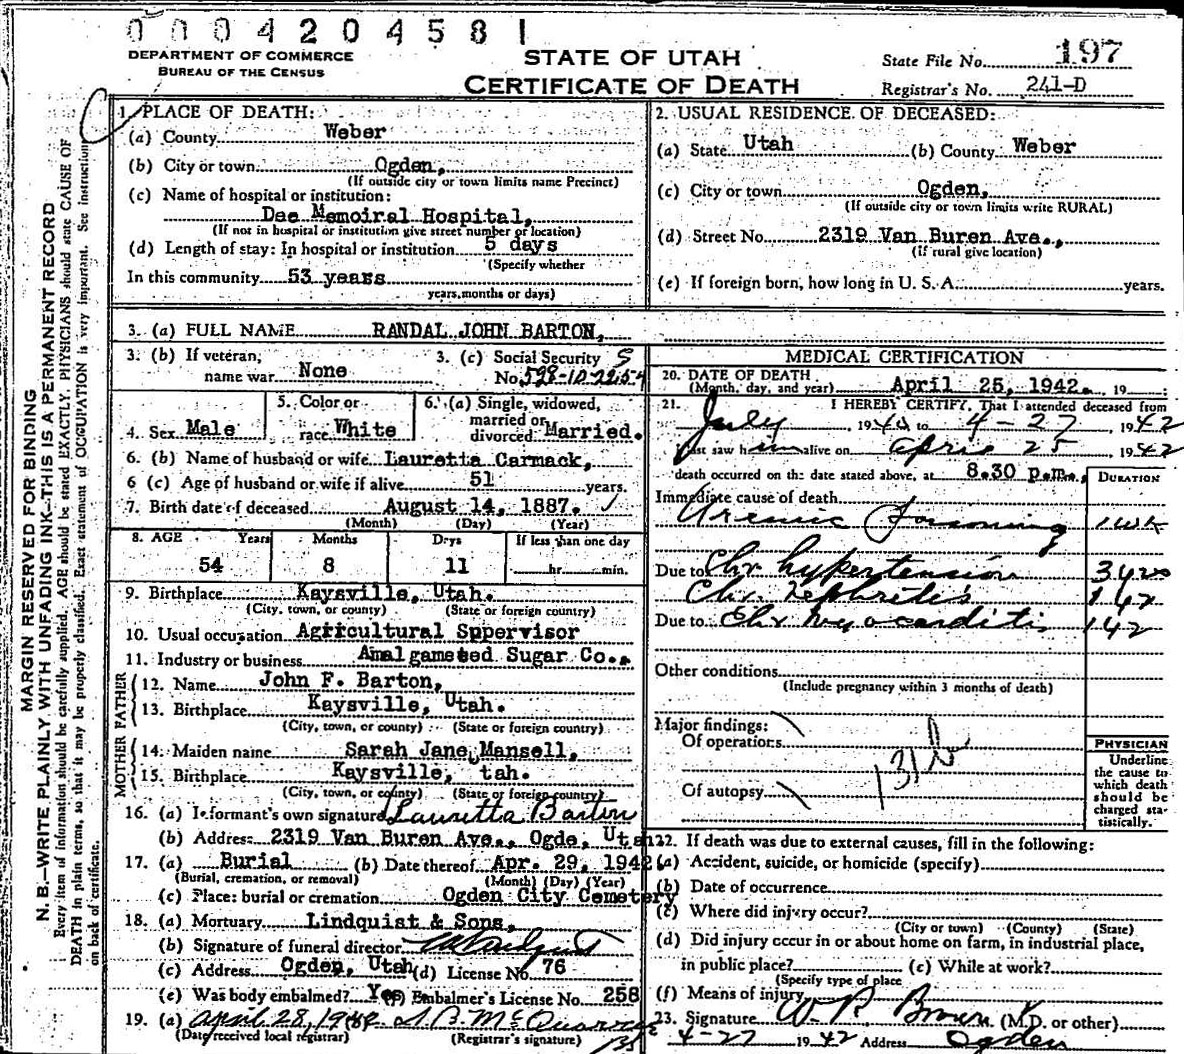 0004204581
DEPARTMENT OF COMMERCE
BUREAU OF THE CENSUS
STATE OF UTAH
CERTIFICATE OF DEATH
State File No. 197
Registrar's No. 241-D
MARGIN RESERVED FOR BINDING
N. B.—WRITE PLAINLY WITH UNFADING INK—THIS IS A PERMANENT RECORD
Every item of information should be carefully supplied. AGE should be stated EXACTLY. PHYSICIANS should state CAUSE OF
DEATH in plain terms, so that it may be properly classified. Exact statement of OCCUPATION is very important. See instructions
on back of certificate.
1. PLACE OF DEATH:
(a) County Weber
(b) City or town Ogden,
(If outside city or town limits name Precinct)
(c) Name of hospital or institution:
Dee Memoiral Hospital,
(If not in hospital or institution give street number or location)
(d) Length of stay: In hospital or institution 5 days
(Specify whether
In this community 53 years
years, months or days)
2. USUAL RESIDENCE OF DECEASED:
(a) State Utah (b) County Weber
(c) City or town Ogden,
(If outside city or town limits write RURAL)
(d) Street No. 2319 Van Buren Ave.,
(If rural give location)
(e) If foreign born, how long in U. S. A. years.
3. (a) FULL NAME RANDAL JOHN BARTON,
3. (b) If veteran, name war None
3. (c) Social Security No. 528-10-2254
4. Sex Male
5. Color or race White
6. (a) Single, widowed, married or divorced Married.
6. (b) Name of husband or wife Lauretta Carmack,
6 (c) Age of husband or wife if alive 51 years.
7. Birth date of deceased August 14, 1887.
(Month) (Day) (Year)
8. AGE Years Months Days If less than one day
54 8 11 hr. min.
9. Birthplace Kaysville, Utah.
(City, town, or county) (State or foreign country)
10. Usual occupation Agricultural Sppervisor
11. Industry or business Amalgameted Sugar Co..
FATHER
12. Name John F. Barton,
13. Birthplace Kaysville, Utah.
(City, town, or county) (State or foreign country)
MOTHER
14. Maiden name Sarah Jane Mansell,
15. Birthplace Kaysville, tah.
(City, town, or county) (State or foreign country)
16. (a) Informant's own signature Lauretta Barton
(b) Address 2319 Van Buren Ave., Ogde, Utah
17. (a) Burial (b) Date thereof Apr. 29, 1942
(Burial, cremation, or removal) (Month) (Day) (Year)
(c) Place: burial or cremation Ogden City Cemetery
18. (a) Mortuary Lindquist & Sons,
(b) Signature of funeral director
(c) Address Ogden, Utah (d) License No. 76
(e) Was body embalmed? Yes (f) Embalmer's License No. 258
19. (a) April 28, 1942
(Date received local registrar) (Registrar's signature)
MEDICAL CERTIFICATION
20. DATE OF DEATH
(Month, day, and year) April 25, 1942. 19
21. I HEREBY CERTIFY, That I attended deceased from
July 1940 to 4-27, 1942
last saw him alive on April 25 1942
death occurred on the date stated above, at 8.30 p.m., DURATION
Immediate cause of death
Uremic Poisoning 1 wk
Due to Chr hypertension 3 yrs
Chr. Nephritis 1 yr
Due to Chr Myocarditis 1 yr
Other conditions
(Include pregnancy within 3 months of death)
Major findings:
Of operations
131b
Of autopsy
PHYSICIAN
Underline
the cause to
which death
should be
charged sta-
tistically.
22. If death was due to external causes, fill in the following:
(a) Accident, suicide, or homicide (specify)
(b) Date of occurrence
(c) Where did injury occur?
(City or town) (County) (State)
(d) Did injury occur in or about home on farm, in industrial place,
in public place? (e) While at work?
(Specify type of place
(f) Means of injury
23. Signature W. P. Brown (M.D. or other)
4-27 1942 Address Ogden